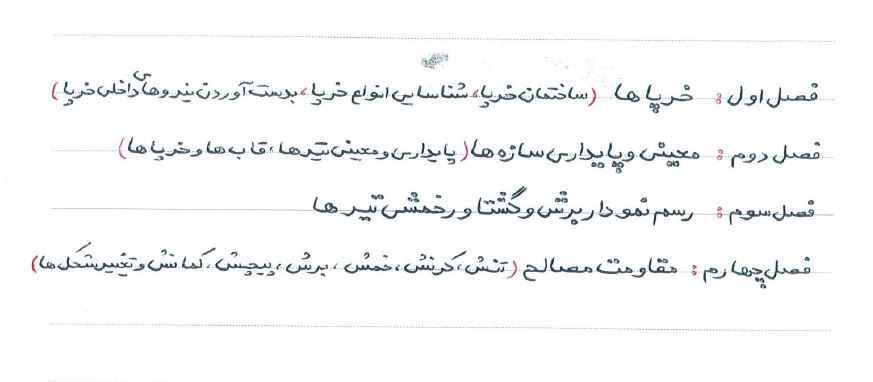 فصل اول: خرپا ها (ساختمان خرپا، شناسایی انواع خرپا، بدست آوردن نیروهای داخلی خرپا)
فصل دوم: معینی و پایداری سازه ها (پایداری و معینی تیرها، قاب ها و خرپا ها)
فصل سوم: رسم نمودار برش و گشتاور خمشی تیر ها
فصل چهارم: مقاومت مصالح (تنش، کرنش، خمش، برش، پیچش، کمانش و تغییر شکل ها)